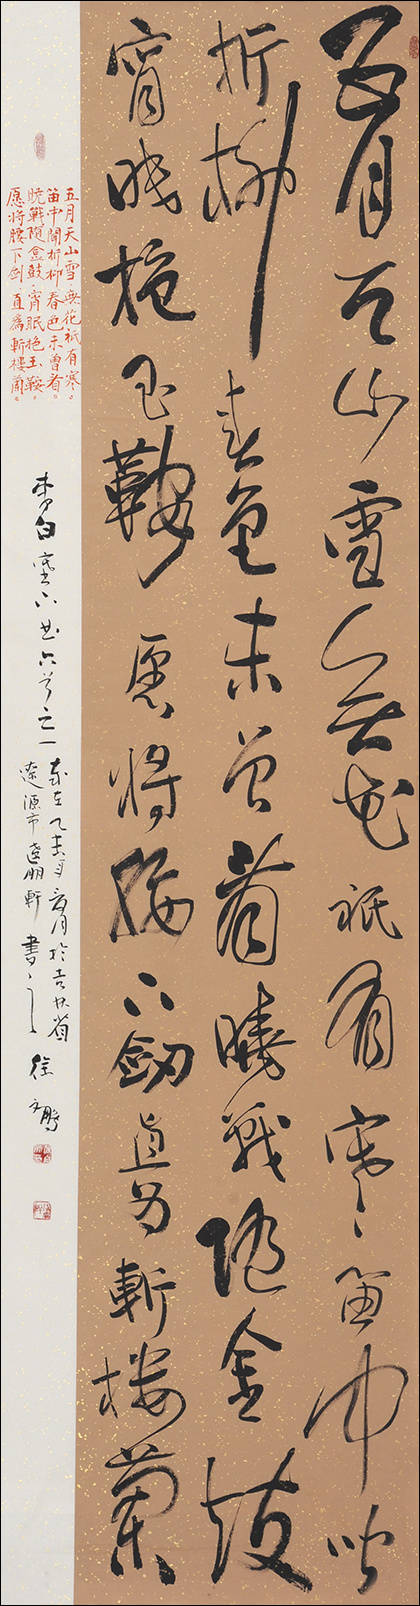 五月天山雪無花祇有寒笛中聞
折柳春色未曾看曉戰隨金鼓
宵眠抱玉鞍愿將腰下劍直為斬樓蘭
五月天山雪無花祇有寒。
笛中聞折柳春色未曾看。
晓戰随金鼓宵眠抱玉鞍。
愿将腰下劍直爲斬樓蘭。
李白塞下曲六首之一
歲在乙未年月於吉林省
遼源市軒書之徐